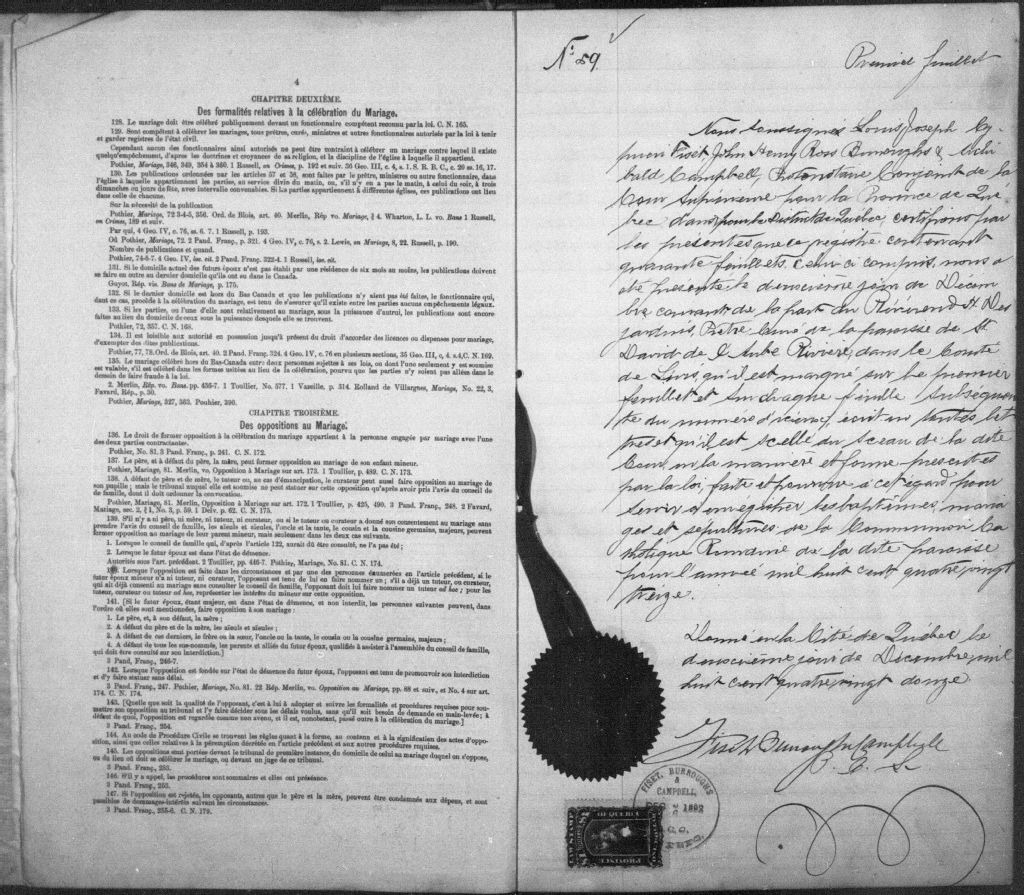 4
CHAPITRE DEUXIÈME.
Des formalités relatives à la célébration du Mariage.
128. Le mariage doit être célébré publiquement devant un fonctionnaire compétent reconnu par la loi. C. N. 165.
129. Sont compétents à célébrer les mariages, tous prêtres, curés, ministres et autres fonctionnaires autorisés par la loi à tenir
et garder registres de l'état civil.
Cependant aucun des fonctionnaires ainsi autorisés ne peut être contraint à célébrer un mariage contre lequel il existe
quelqu'empêchement, d'après les doctrines et croyances de sa religion, et la discipline de l'église à laquelle il appartient.
Pothier, Mariage, 346, 349, 354 à 360. 1 Russell, on Crimes, p. 192 et suiv. 36 Geo. III, c. 4, s. 1. S. R. B. C., c. 20 ss. 16, 17.
130. Les publications ordonnées par les articles 57 et 58, sont faites par le prêtre, ministre ou autre fonctionnaire, dans
l'église à laquelle appartiennent les parties, au service divin du matin, ou, s'il n'y en a pas le matin, à celui du soir, à trois
dimanches ou jours de fête, avec intervalle convenables. Si les parties appartiennent à différentes églises, ces publications ont lieu
dans celle de chacune.
Sur la nécessité de la publication
Pothier, Mariage, 72 3-4-5, 356. Ord. de Blois, art. 40. Merlin, Rép vo. Mariage, § 4. Wharton, L. L. vo. Bans 1 Russell,
on Crimes, 189 et suiv.
Par qui, 4 Geo. IV, c. 76, ss. 6. 7. 1 Russell, p. 193.
Où Pothier, Mariage, 72. 2 Pand. Franç., p. 321. 4 Geo. IV, c. 76, s. 2. Lewis, on Mariage, 8, 22. Russell, p. 190.
Nombre de publications et quand.
Pothier, 74-6-7. 4 Geo. IV, loc. cit. 2 Pand. Franç. 322-4. 1 Russell, loc. cit.
131. Si le domicile actuel des futurs époux n'est pas établi par une résidence de six mois au moins, les publications doivent
se faire en outre au dernier domicile qu'ils ont eu dans le Canada.
Guyot, Rép. vis. Bans de Mariage, p. 175.
132. Si le dernier domicile est hors du Bas Canada et que les publications n'y aient pas été faites, le fonctionnaire qui,
dans ce cas, procède à la célébration du mariage, est tenu de s'assurer qu'il existe entre les parties aucuns empêchements légaux.
133. Si les parties, ou l'une d'elle sont relativement au mariage, sous la puissance d'autrui, les publications sont encore
faites au lieu du domicile de ceux sous la puissance desquels elle se trouvent.
Pothier, 72, 357. C. N. 168.
134. Il est loisible aux autorité en possession jusqu'à présent du droit d'accorder des licences ou dispenses pour mariage,
d'exempter des dites publications.
Pothier, 77, 78. Ord. de Blois, art. 40. 2 Pand. Franç. 324. 4 Geo. IV, c. 76 en plusieurs sections, 35 Geo. III, c. 4 s. 4, C. N. 169.
135. Le mariage célébré hors du Bas-Canada entre deux personnes sujettes à ses lois, ou dont l'une seulement y est soumise
est valable, s'il est célébré dans les formes usitées au lieu de la célébration, pourvu que les parties n'y soient pas allées dans le
dessein de faire fraude à la loi.
2. Merlin, Rép. vo. Bans. pp. 436-7. 1 Toullier, No. 577. 1 Vazeille, p. 314. Rolland de Villargues, Mariage, No. 22, 3,
Favard, Rép., p. 30.
Pothier, Mariage, 327, 363. Pouhier, 390.
CHAPITRE TROISIÈME.
Des oppositions au Mariage.
136. Le droit de former opposition à la célébration du mariage appartient à la personne engagée par mariage avec l'une
des deux parties contractantes.
Pothier, No. 81. 3 Pand. Franç., p. 241. C. N. 172.
137. Le père, et à défaut du père, la mère, peut former opposition au mariage de son enfant mineur.
Pothier, Mariage, 81. Merlin, vo. Opposition à Mariage sur art. 173. 1 Toullier, p. 489. C. N. 173.
138. A défaut de père et de mère, le tuteur ou, au cas d'émancipation, le curateur peut aussi faire opposition au mariage de
son pupille ; mais le tribunal auquel elle est soumise ne peut statuer sur cette opposition qu'après avoir pris l'avis du conseil de
famille, dont il doit ordonner la convocation.
Pothier, Mariage, 81. Merlin, Opposition à Mariage sur art. 172. 1 Toullier, p. 425, 490. 3 Pand. Franç., 248. 2 Favard,
Mariage, sec. 2, § 1, No. 3, p. 59. 1 Delv. p. 62. C. N. 175.
139. S'il n'y a ni père, ni mère, ni tuteur, ni curateur, ou si le tuteur ou curateur a donné son consentement au mariage sans
prendre l'avis du conseil de famille, les aïeuls et aïeules, l'oncle et la tante, le cousin et la cousine germains, majeurs, peuvent
former opposition au mariage de leur parent mineur, mais seulement dans les deux cas suivants.
1. Lorsque le conseil de famille qui, d'après l'article 122, aurait dû être consulté, ne l'a pas été ;
2. Lorsque le futur époux est dans l'état de démence.
Autorités sous l'art. précédent. 2 Toullier, pp. 446-7. Pothier, Mariage, No. 81. C. N. 174.
140. Lorsque l'opposition est faite dans les circonstances et par une des personnes énumérées en l'article précédent, si le
futur époux mineur n'a ni tuteur, ni curateur, l'opposant est tenu de lui en faire nommer un ; s'il a déjà un tuteur, ou curateur,
qui ait déjà consenti au mariage sans consulter le conseil de famille, l'opposant doit lui faire nommer un tuteur ad hoc ; pour les
tuteur, curateur ou tuteur ad hoc, représenter les intérêts du mineur sur cette opposition.
141. [Si le futur époux, étant majeur, est dans l'état de démence, et non interdit, les personnes suivantes peuvent, dans
l'ordre où elles sont mentionnées, faire opposition à son mariage :
1. Le père, et, à son défaut, la mère ;
2. A défaut du père et de la mère, les aïeuls et aïeules ;
3. A défaut de ces derniers, le frère ou la sœur, l'oncle ou la tante, le cousin ou la cousine germains, majeurs ;
4. A défaut de tous les sus-nommés, les parents et alliés du futur époux, qualifiés à assister à l'assemblée du conseil de famille,
qui doit être consulté sur son interdiction.]
3 Pand. Franç., 246-7.
142. Lorsque l'opposition est fondée sur l'état de démence du futur époux, l'opposant est tenu de promouvoir son interdiction
et d'y faire statuer sans délai.
3 Pand. Franç., 247. Pothier, Mariage, No. 81. 22 Rép. Merlin, vo. Opposition au Mariage, pp. 88 et suiv., et No. 4 sur art.
174. C. N. 174.
143. [Quelle que soit la qualité de l'opposant, c'est à lui à adopter et suivre les formalités et procédures requises pour sou-
mettre son opposition au tribunal et l'y faire décider sous les délais voulus, sans qu'il soit besoin de demande en main-levée ; à
défaut de quoi, l'opposition est regardée comme non avenu, et il est, nonobstant, passé outre à la célébration du mariage.]
3 Pand. Franç., 254.
144. Au code de Procédure Civile se trouvent les règles quant à la forme, au contenu et à la signification des actes d'oppo-
sition, ainsi que celles relatives à la péremption décrétée en l'article précédent et aux autres procédures requises.
145. Les oppositions sont portées devant le tribunal de première instance, du domicile de celui au mariage duquel on s'oppose,
ou du lieu où doit se célébrer le mariage, ou devant un juge de ce tribunal.
3 Pand. Franç., 253.
146. S'il y a appel, les procédures sont sommaires et elles ont préséance.
3 Pand. Franç., 253.
147. Si l'opposition est rejetée, les opposants, autres que le père et la mère, peuvent être condamnés aux dépens, et sont
passibles de dommages-intérêts suivant les circonstances.
3 Pand. Franç., 255-6. C. N. 179.
No. 89.
Premier feuillet
Nous soussignés Louis Joseph Cy-
prien Fiset, John Henry Ross Burroughs & Archi
bald Campbell, Protonotaire Conjoint de la
Cour Supérieure pour la Province de Qué
bec dans pour le District de Québec certifions par
les présentes que ce registre contenant
quarante feuillets, celui-ci compris, nous a
été présenté le deuxième jour de Décem
bre courant de la part du Révérend H. Des
jardins, Prêtre Curé de la paroisse de St
David de l'Aube Rivière, dans le Comté
de Lévis, qu'il est marqué sur le premier
feuillet et sur chaque feuille subséquen
te du numéro d'icelui, écrit en toutes let
tres et qu'il est scellé du sceau de la dite
Cour en la manière et forme prescrites
par la loi, faite et pourvue à cet égard pour
servir à enregistrer les baptêmes, maria
ges et sépultures de la Communion Ca
tholique Romaine de la dite paroisse
pour l'année mil huit cent quatre vingt
treize.
Donné en la Cité de Québec le
deuxième jour de Décembre, mil
huit cent quatre vingt douze.
Fiset Burroughs Campbell
P. C. S.
FISET, BURROUGHS
&
CAMPBELL,
DEC 2 1892
P.C.S.
QUEBEC.
LAW STAMP
PROVINCE
OF QUEBEC
$1